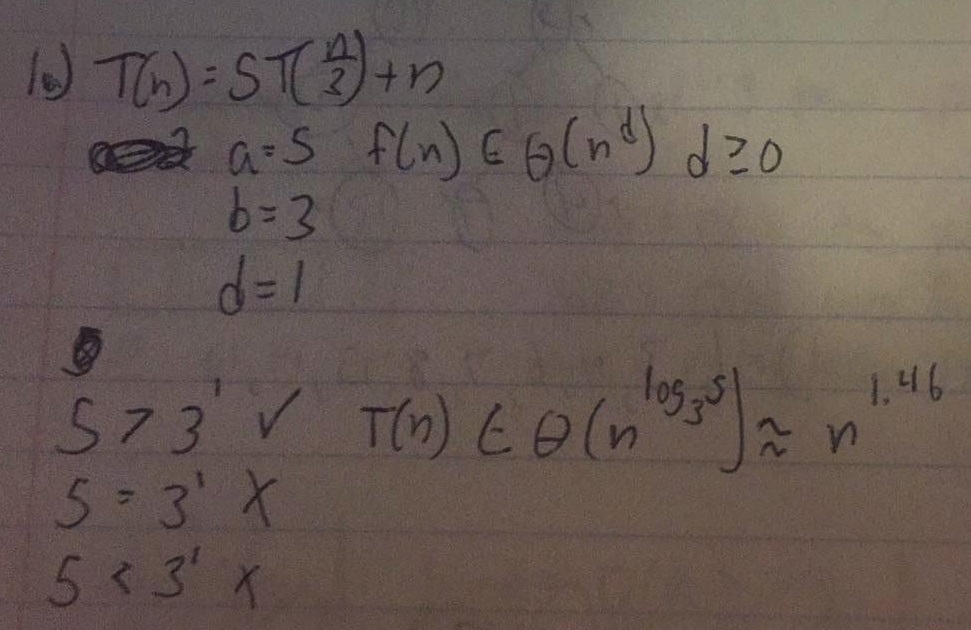 1a) T(n) = 5T(n/3) + n
a=5 f(n) ∈ Θ(n^d) d≥0
b=3
d=1
5 > 3^1 ✓ T(n) ∈ Θ(n^log_3 5) ≈ n^1.46
5 = 3^1 X
5 < 3^1 X